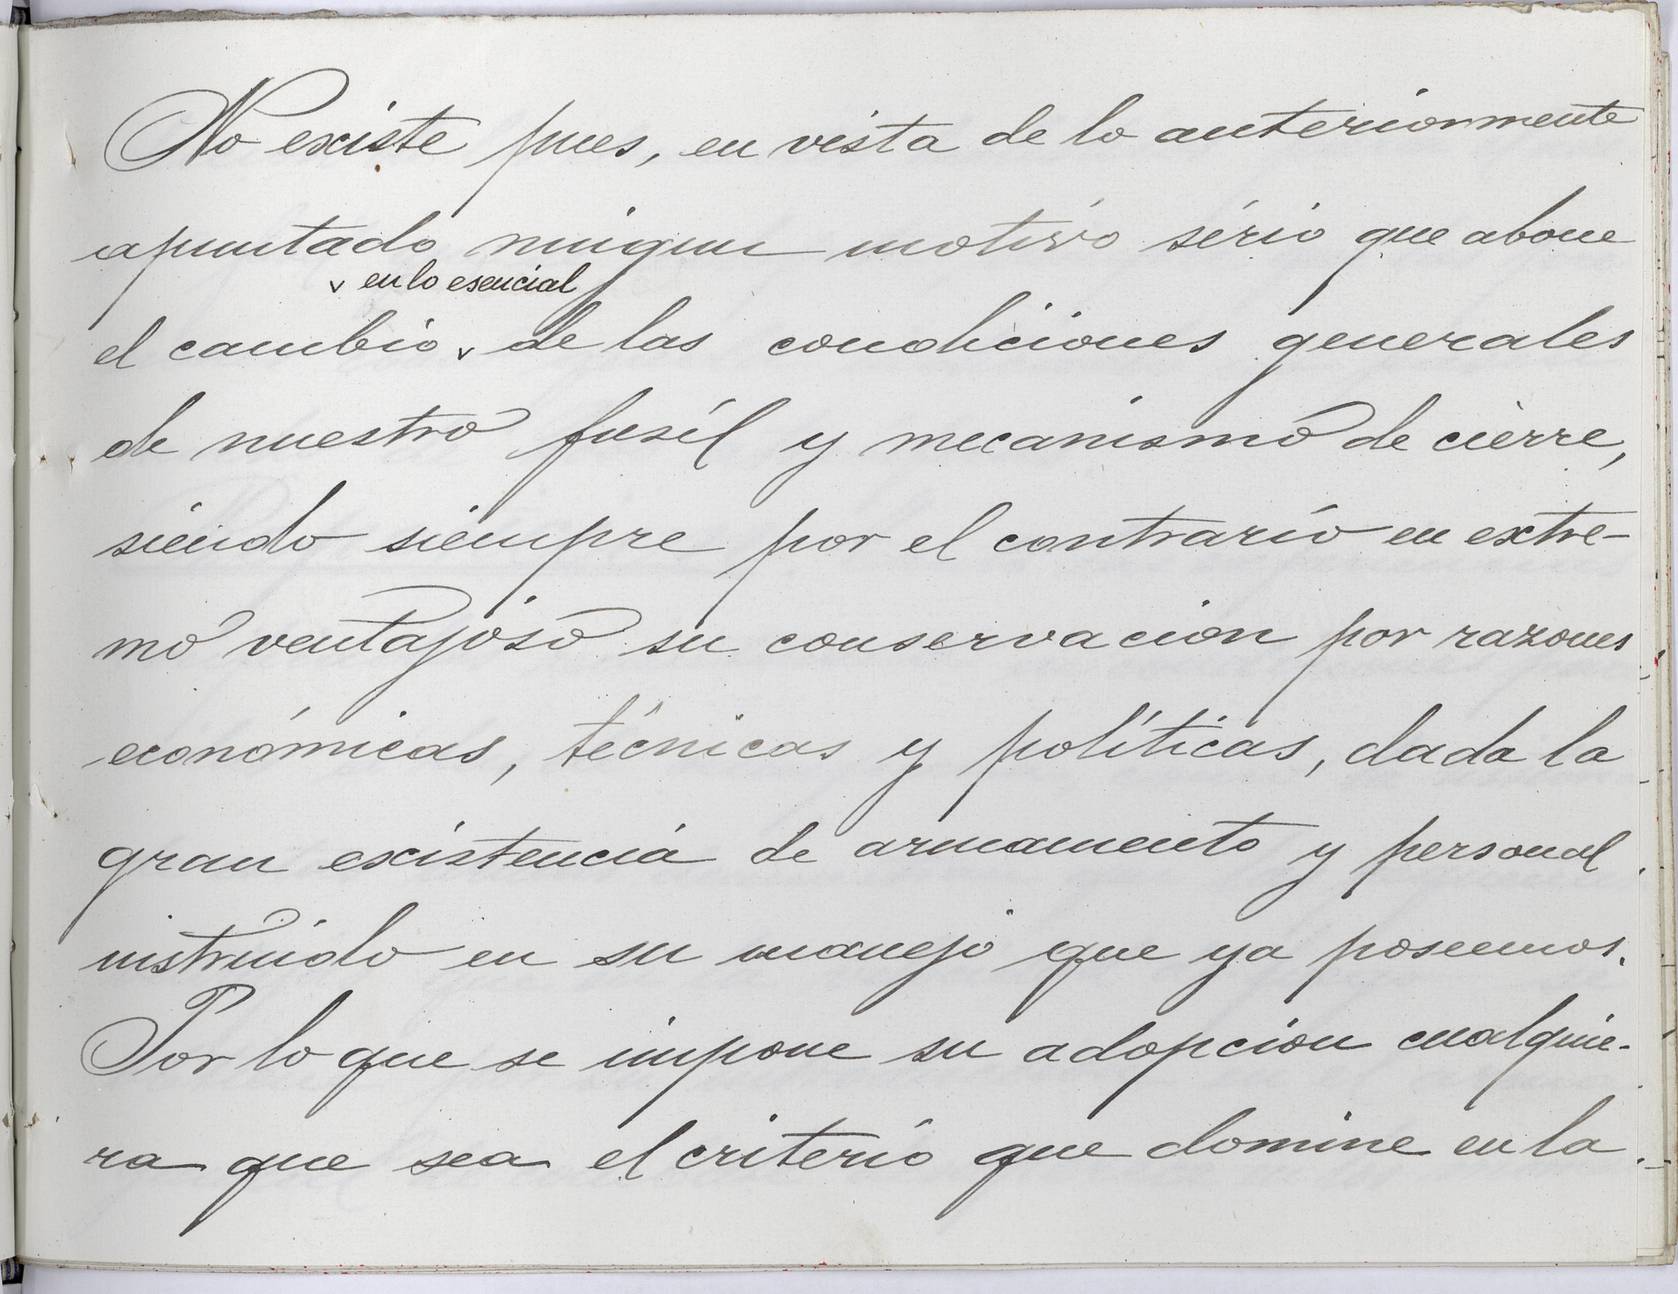 No existe pues, en vista de lo anteriormente
apuntado ningun motivo sério que abone
v en lo esencial
el cambio v de las condiciones generales
de nuestro fusil y mecanismo de cierre,
siendo siempre por el contrario en extre-
mo ventajoso su conservacion por razones
económicas, técnicas y políticas, dada la
gran existencia de armamento y personal
instruido en su manejo que ya poseemos.
Por lo que se impone su adopcion cualquie-
ra que sea el criterio que domine en la